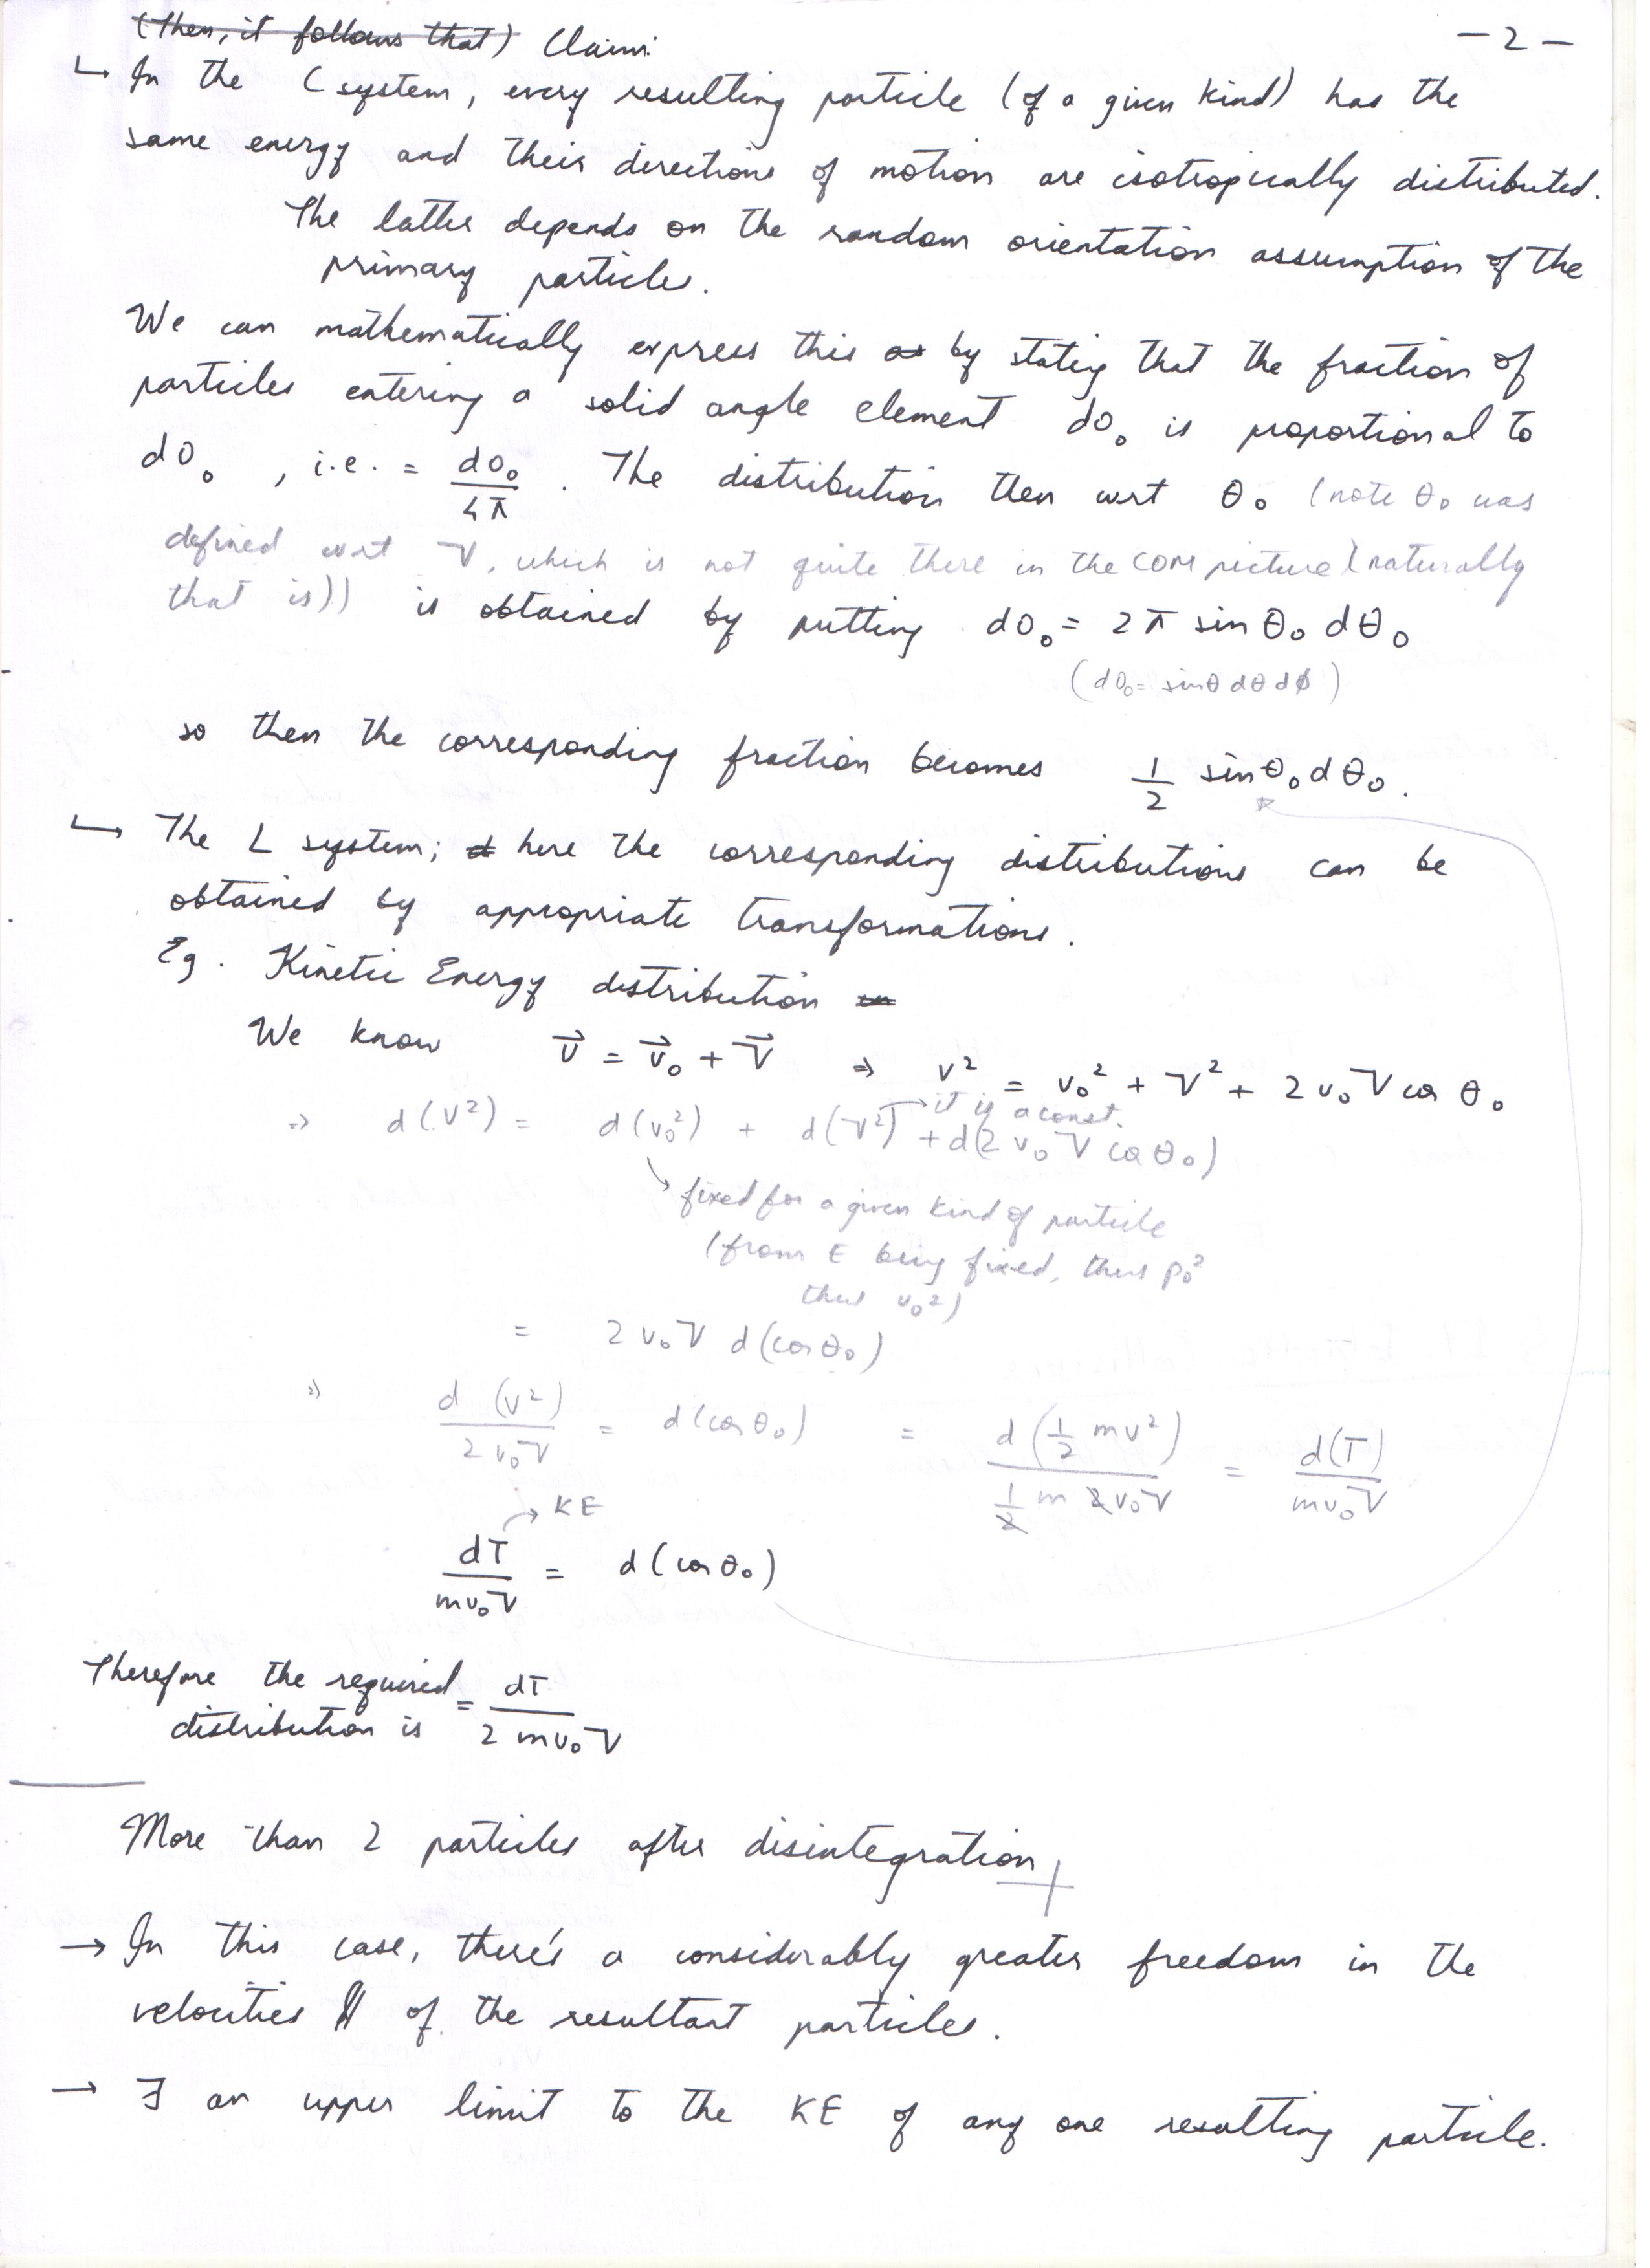 (Then, it follows that) Claim: — 2 —
↳ In the C system, every resulting particle (of a given kind) has the
same energy and their directions of motion are isotropically distributed.
The latter depends on the random orientation assumption of the
primary particles.
We can mathematically express this as by stating that the fraction of
particles entering a solid angle element do₀ is proportional to
do₀, i.e. = do₀/4π. The distribution then wrt θ₀ (note θ₀ was
defined wrt V, which is not quite there in the COM picture (naturally
that is)) is obtained by putting do₀ = 2π sin θ₀ dθ₀
(do₀ = sinθ dθ dϕ)
so then the corresponding fraction becomes 1/2 sinθ₀ dθ₀.
↳ The L system; here the corresponding distributions can be
obtained by appropriate transformations.
Eg. Kinetic Energy distribution
We know v⃗ = v⃗₀ + V⃗ ⇒ v² = v₀² + V² + 2v₀V cos θ₀
→ it is a const.
⇒ d(v²) = d(v₀²) + d(V²) + d(2v₀V cos θ₀)
↘ fixed for a given kind of particle
(from E being fixed, thus p₀²
thus v₀²)
= 2v₀V d(cosθ₀)
⇒ d(v²)/2v₀V = d(cosθ₀) = d(1/2 mv²)/(1/2 m 2v₀V) = d(T)/mv₀V
→ KE
dT/mv₀V = d(cosθ₀)
Therefore the required
distribution is = dT/2mv₀V
More than 2 particles after disintegration
→ In this case, there's a considerably greater freedom in the
velocities of the resultant particles.
→ ∃ an upper limit to the KE of any one resulting particle.